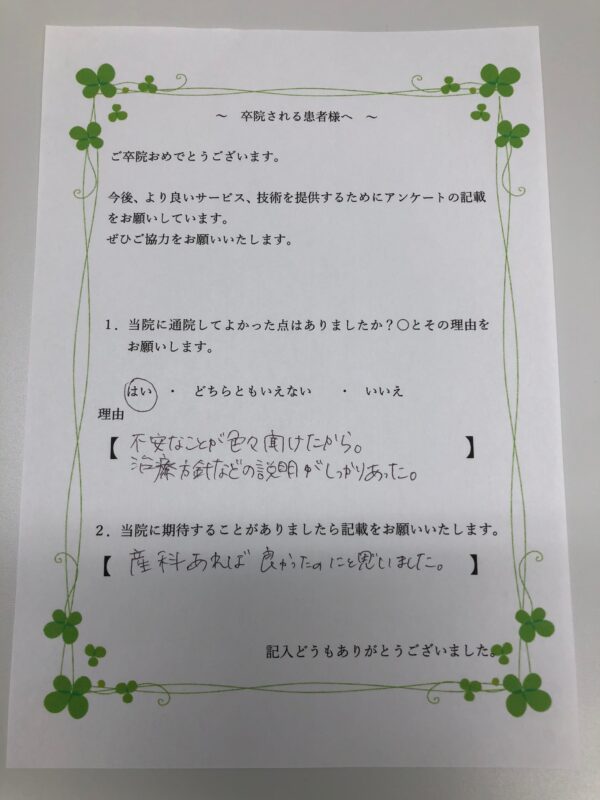 ～　卒院される患者様へ　～
ご卒院おめでとうございます。
今後、より良いサービス、技術を提供するためにアンケートの記載
をお願いしています。
ぜひご協力をお願いいたします。
1．当院に通院してよかった点はありましたか？〇とその理由を
お願いします。
はい　・　どちらともいえない　・　いいえ
理由
【 不安なことが色々聞けたから。
治療方針などの説明がしっかりあった。 】
2．当院に期待することがありましたら記載をお願いいたします。
【 産科あれば良かったのにと思いました。 】
記入どうもありがとうございました。